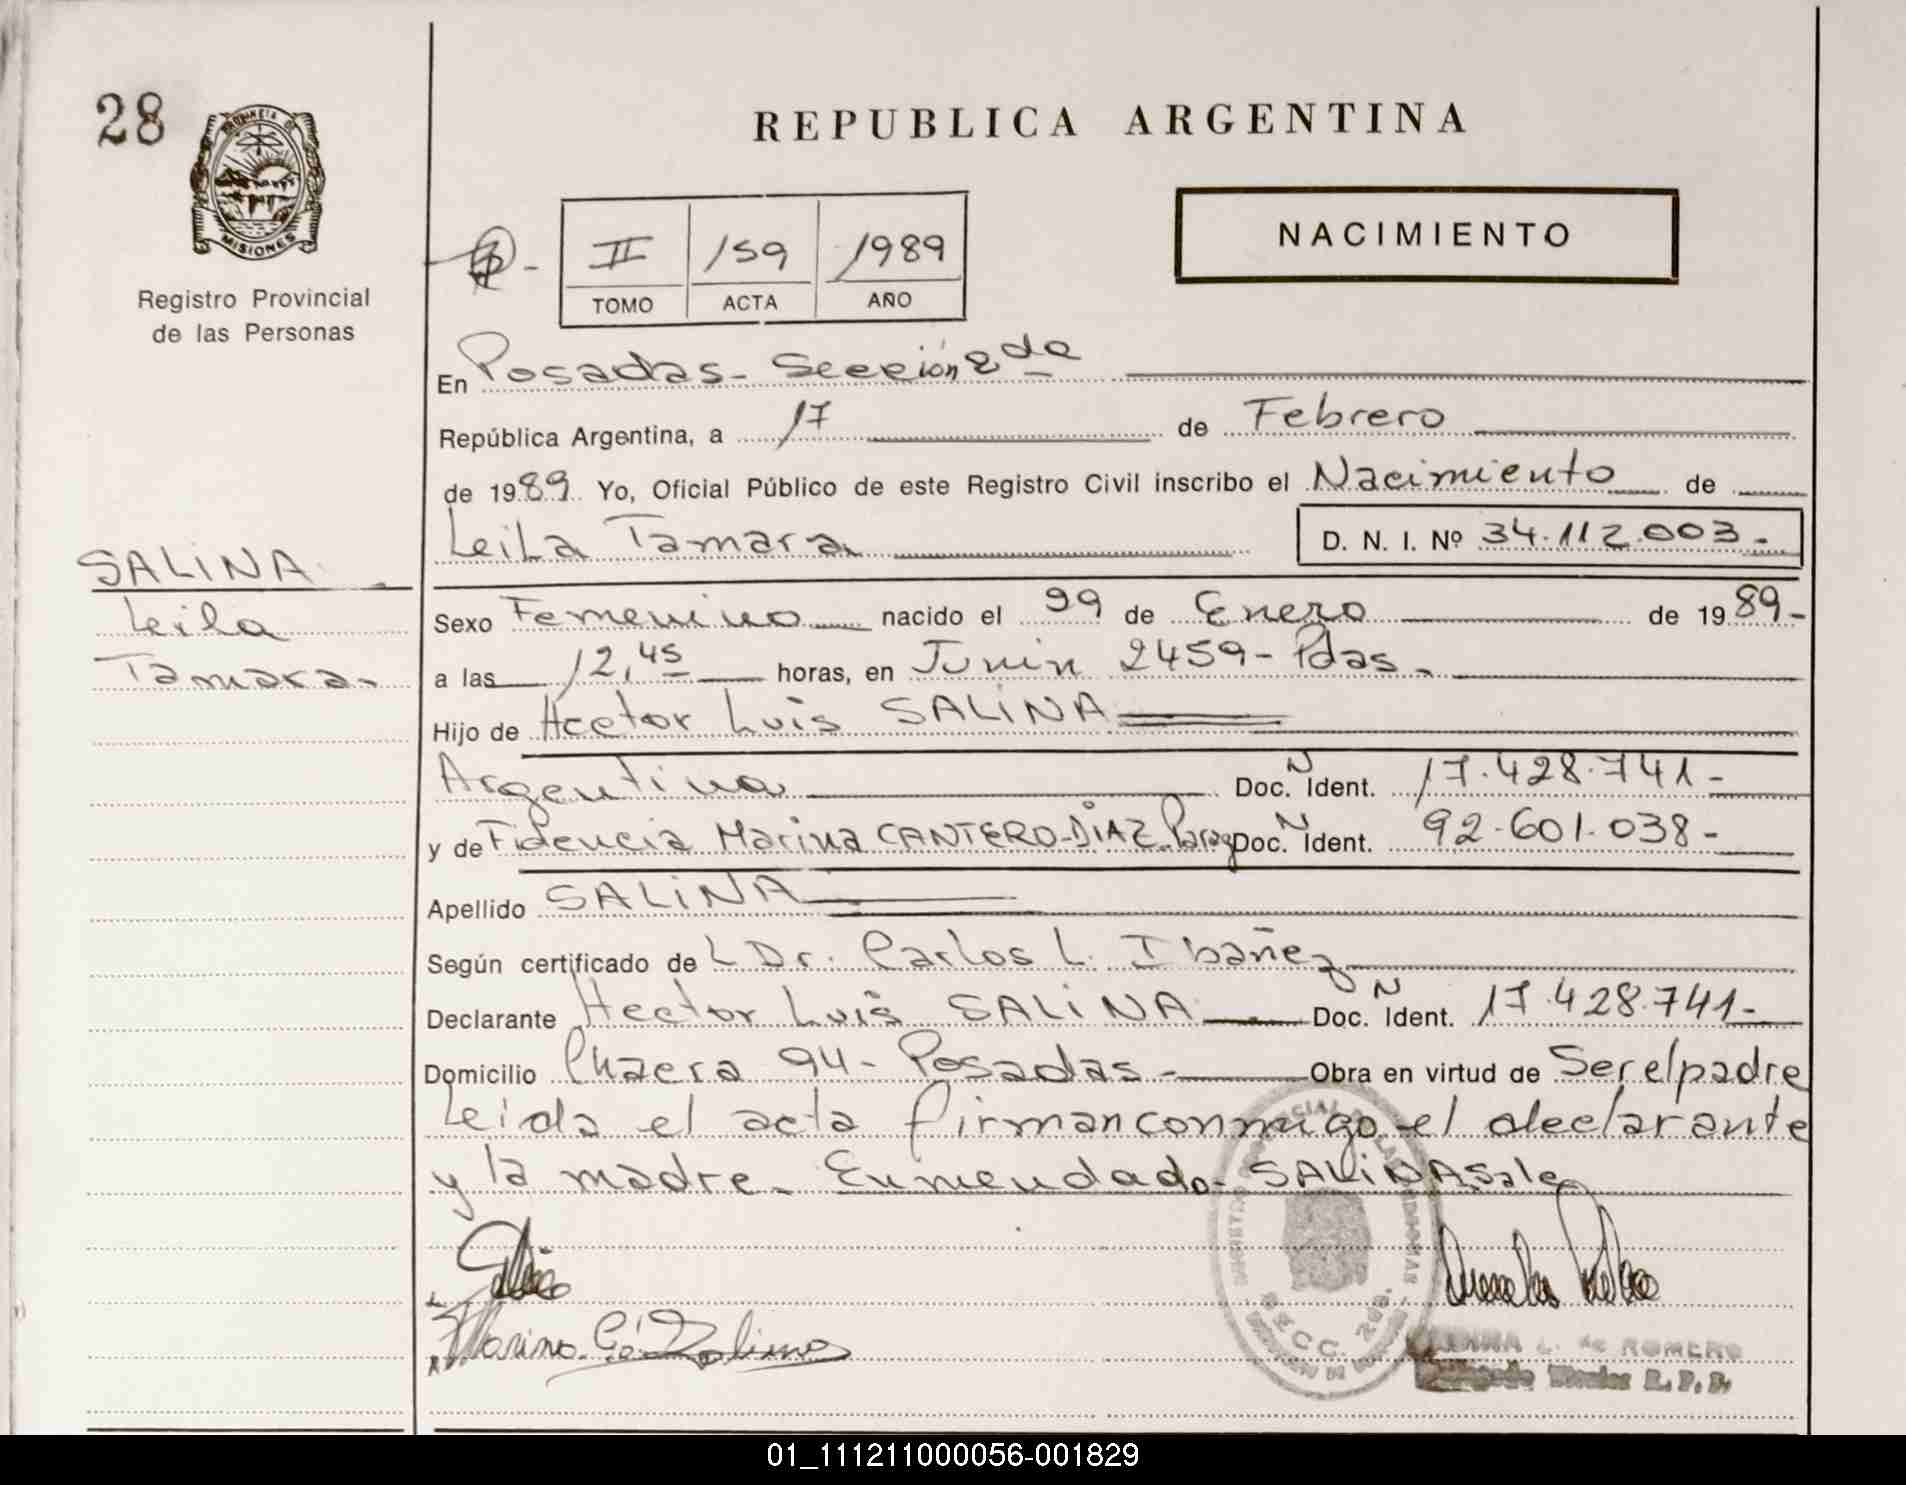 28
PROVINCIA DE
MISIONES
Registro Provincial
de las Personas
REPUBLICA ARGENTINA
NACIMIENTO
II 159 1989
TOMO ACTA AÑO
En Posadas - Sección 2da
República Argentina, a 17 de Febrero
de 1989. Yo, Oficial Público de este Registro Civil inscribo el Nacimiento de
Leila Tamara D. N. I. Nº 34.112.003.-
SALINA
Leila
Tamara.-
Sexo Femenino nacido el 29 de Enero de 1989-
a las 12,45 horas, en Junin 2459 - Pdas.
Hijo de Hector Luis SALINA
Argentina Doc. N Ident. 17.428.741-
y de Fidencia Marina CANTERO-DIAZ Parag Doc. N Ident. 92.601.038-
Apellido SALINA
Según certificado de L Dr. Carlos L. Ibañez
Declarante Hector Luis SALINA Doc. N Ident. 17.428.741-
Domicilio Chacra 94 - Posadas - Obra en virtud de Ser el padre
Leida el acta firman conmigo el declarante
y la madre. Enmendado - SALINA Sale
SECC. 2da.
L. de ROMERO
R.P.P.
01_111211000056-001829